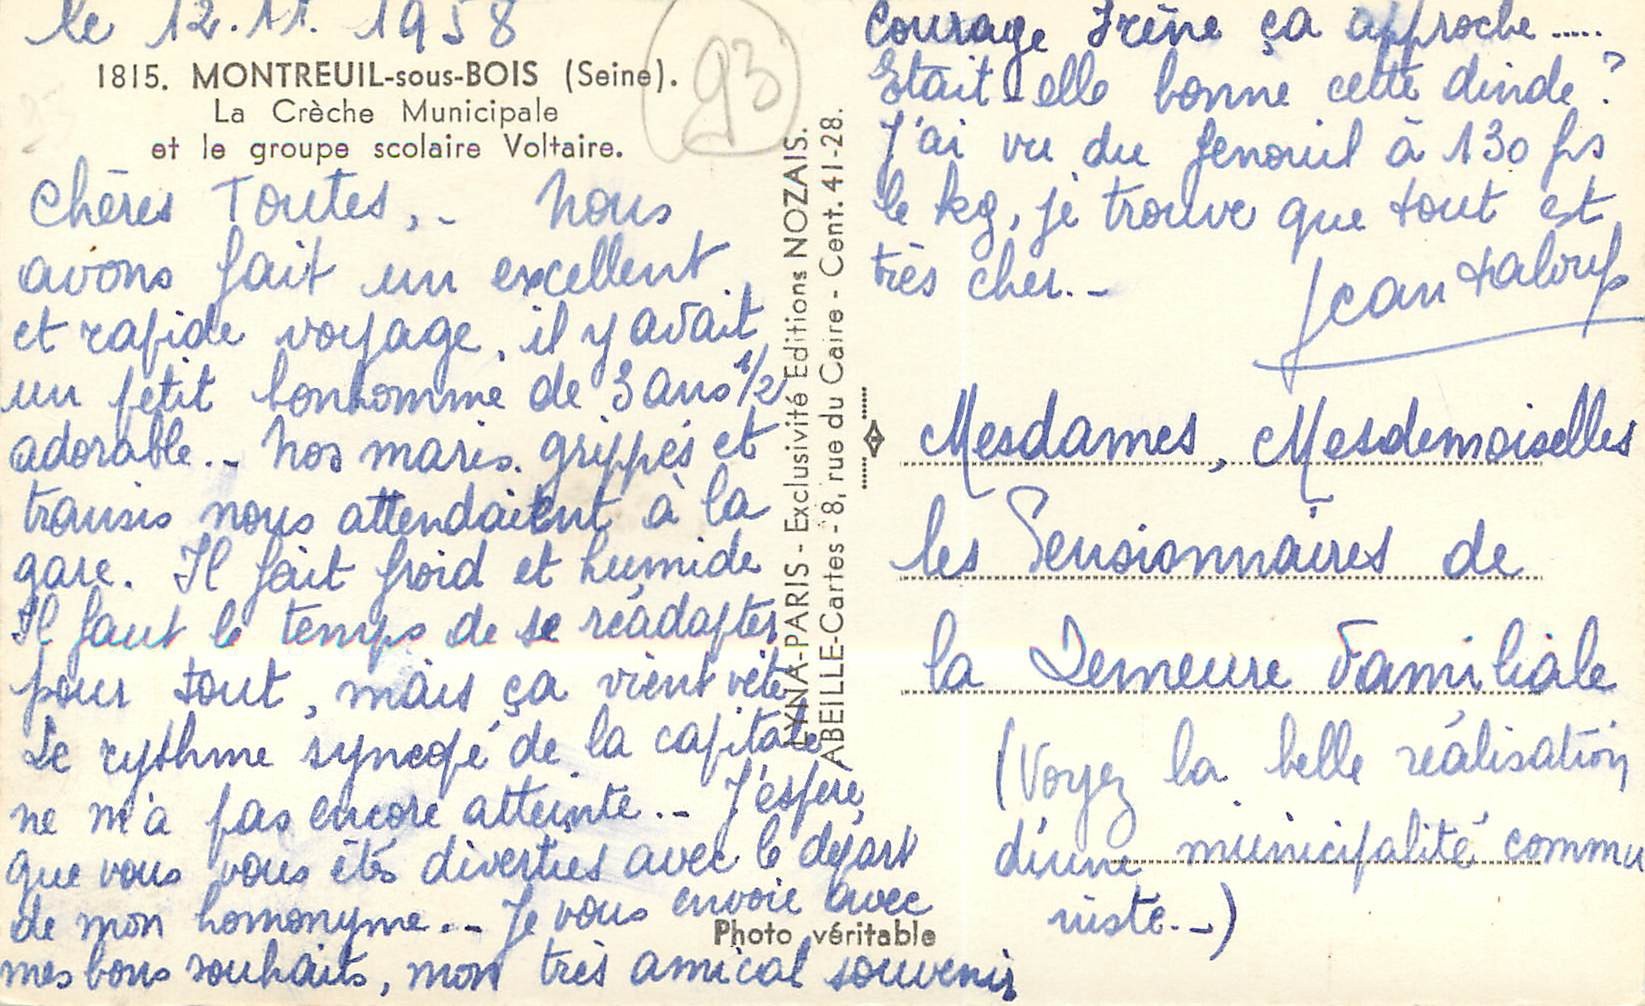 le 12.11.1958
1815. MONTREUIL-sous-BOIS (Seine).
La Crèche Municipale
et le groupe scolaire Voltaire.
93
Chères Toutes, - Nous
avons fait un excellent
et rapide voyage, il y avait
un petit bonhomme de 3 ans 1/2
adorable.. - Nos maris grippés et
transis nous attendaient à la
gare. Il fait froid et humide
Il faut le temps de se réadapter
pour tout, mais ça vient vite
Le rythme syncopé de la capitale
ne m'a pas encore atteinte.. - J'espère
que vous vous êtes diverties avec le départ
de mon homonyme.. - Je vous envoie avec
mes bons souhaits, mon très amical souvenir
Courage Irène ça approche .....
Etait-elle bonne cette dinde ?
J'ai vu du fenouil à 130 frs
le kg, je trouve que tout est
très cher.. -
Jean
LYNA-PARIS - Exclusivité Editions NOZAIS.
ABEILLE-Cartes - 8, rue du Caire - Cent. 41-28.
Mesdames, Mesdemoiselles
les Pensionnaires de
la Demeure Familiale
(Voyez la belle réalisation
d'une municipalité commu
niste.. -)
Photo véritable